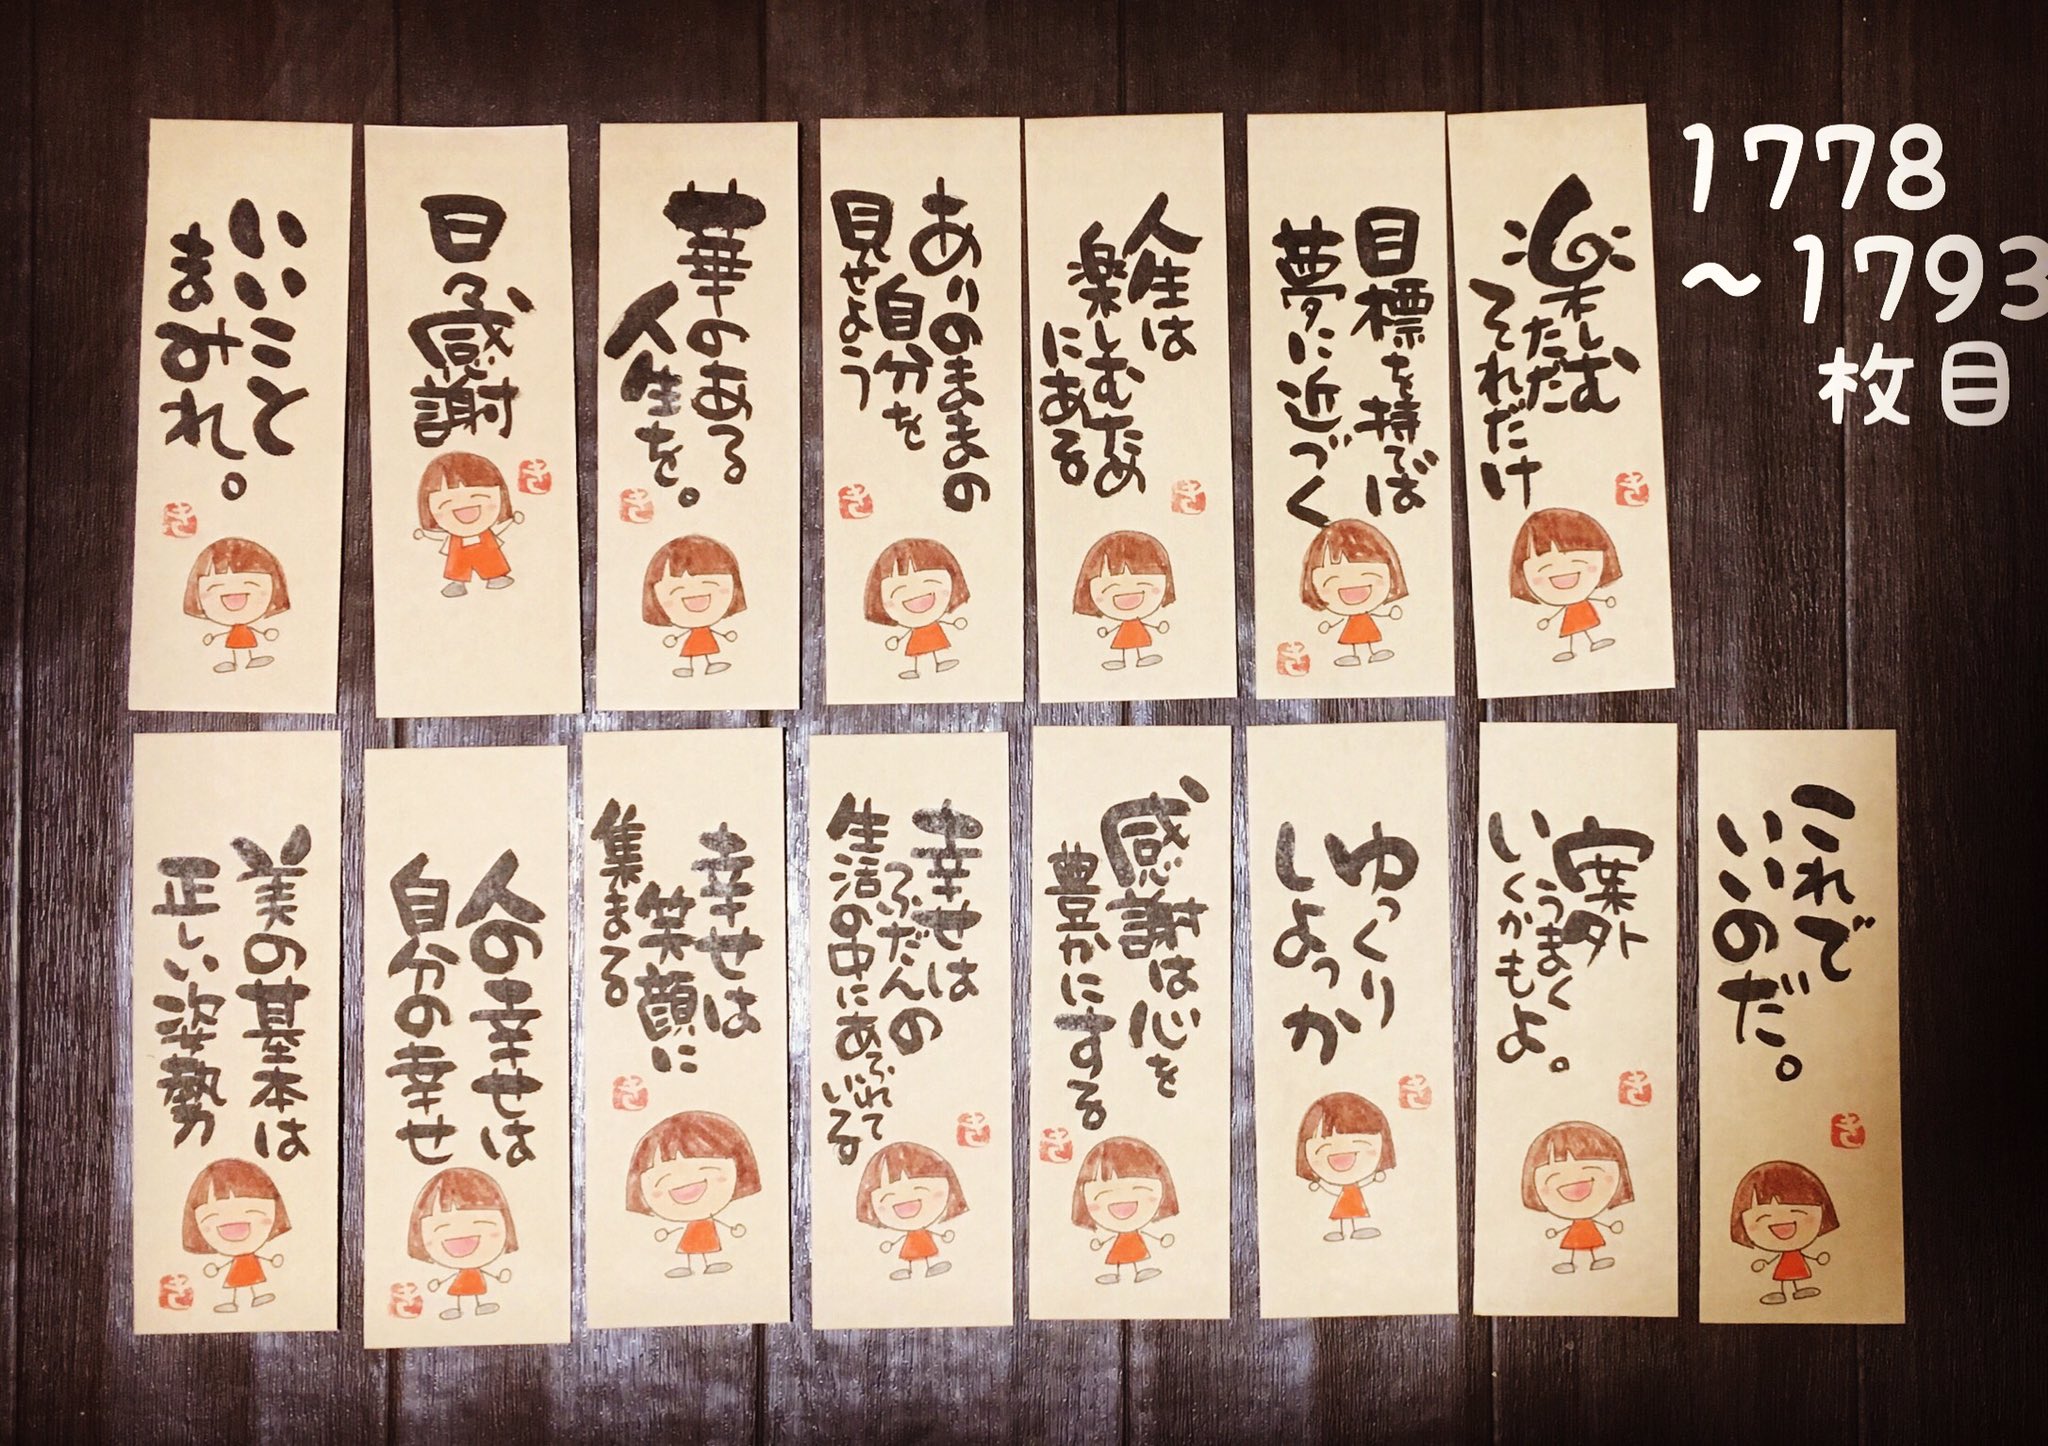 いいこと
まみれ。
日々感謝
華のある
人生を。
ありのままの
自分を
見せよう
人生は
楽しむため
にある
目標を持てば
夢に近づく
楽しむ
ただ
それだけ
1778
～1793
枚目
美の基本は
正しい姿勢
人の幸せは
自分の幸せ
幸せは
笑顔に
集まる
幸せは
ふだんの
生活の中にあふれて
いる
感謝は心を
豊かにする
ゆっくり
しよっか
案外
うまく
いくかもよ。
これで
いいのだ。